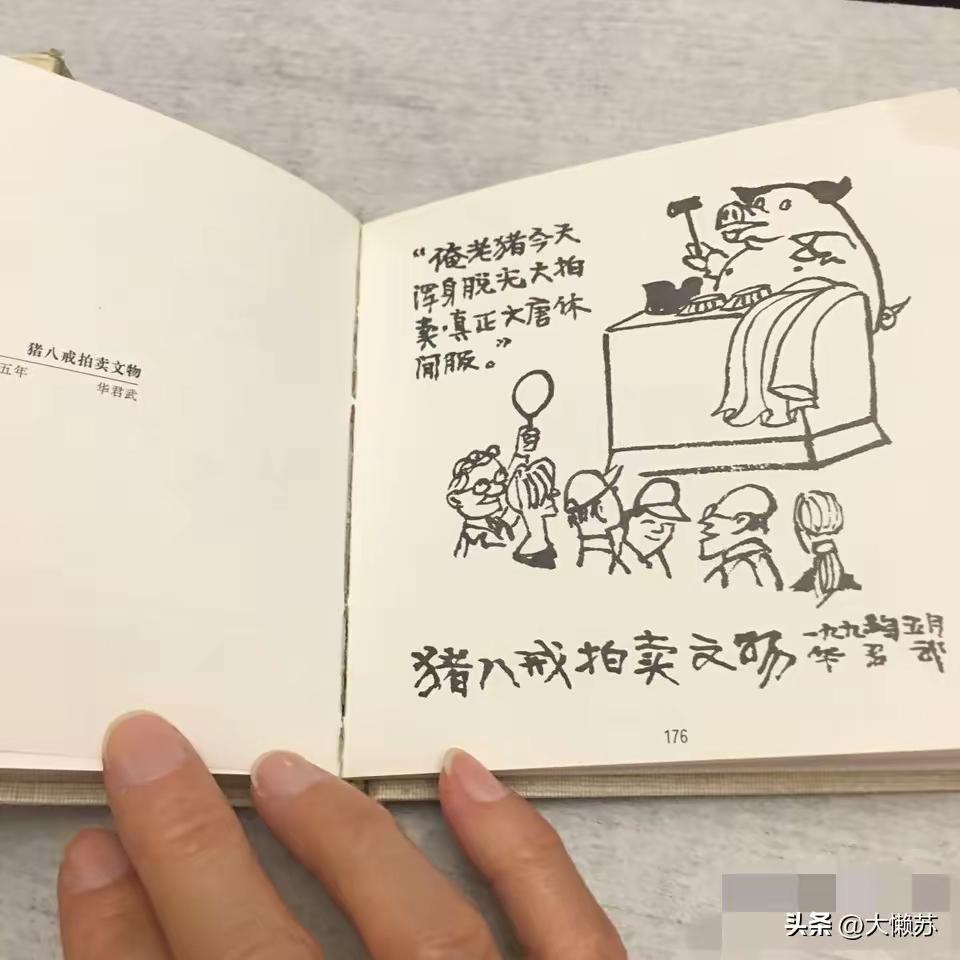 猪八戒拍卖文物
五年
华君武
“俺老猪今天
浑身脱光大拍
卖.真正大唐休
闲服。”
猪八戒拍卖文物
一九九五年五月
华君武
176
头条 @大懒苏